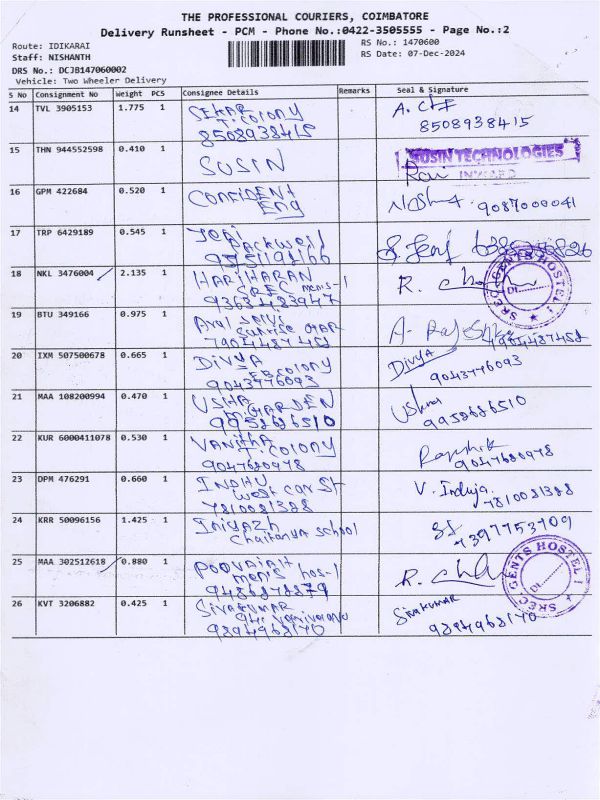 THE PROFESSIONAL COURIERS, COIMBATORE
Delivery Runsheet - PCM - Phone No.:0422-3505555 - Page No.:2
Route: IDIKARAI
RS No.: 1470600
Staff: NISHANTH
RS Date: 07-Dec-2024
DRS No.: DCJB147060002
Vehicle: Two Wheeler Delivery
S No Consignment No Weight PCS Consignee Details Remarks Seal & Signature
14 TVL 3905153 1.775 1
T. colony
8508938415
8508938415
15 THN 944552598 0.410 1 SUSIN
SUSIN TECHNOLOGIES
16 GPM 422684 0.520 1 CONFIDENT
Eng
9087000041
17 TRP 6429189 0.545 1 Jeni
Packwell
18 NKL 3476004 2.135 1 HARIHARAN
SREC mens-1
9363483947
R.
SREC GENTS HOSTEL I
19 BTU 349166 0.975 1
20 IXM 507500678 0.665 1 DIVYA
EB colony
9043776093
Divya
9043776093
21 MAA 108200994 0.470 1 USHA
GARDEN
9952686510
Usha
9952686510
22 KUR 6000411078 0.530 1 VANITHA
T. COLONY
9047680978
9047680978
23 DPM 476291 0.660 1 INDHU
West car St
7810081388
V. Induja
7810081388
24 KRR 50096156 1.425 1
Chaitanya School
25 MAA 302512618 0.880 1
mens hos-1
R.
SREC GENTS HOSTEL I
26 KVT 3206882 0.425 1 SIVAKUMAR
9894968170
Sivakumar
9894968170